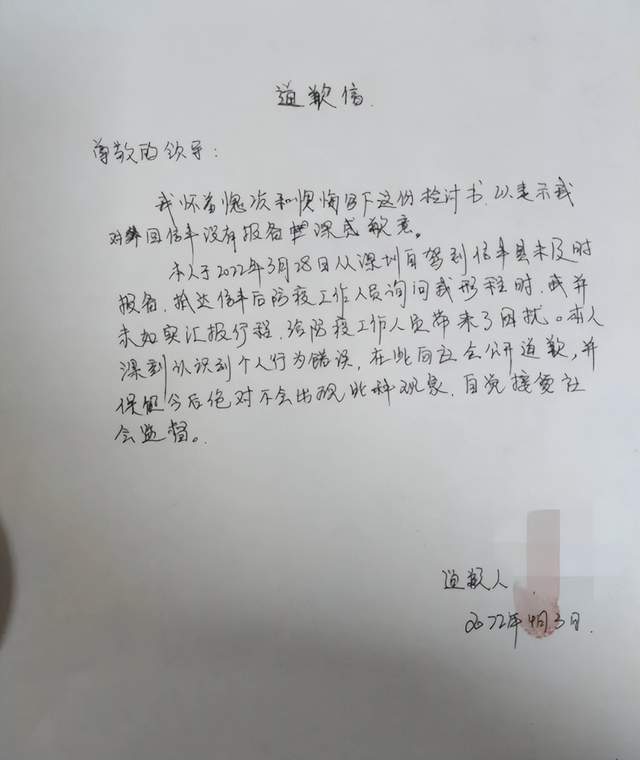 道歉信
尊敬的领导：
我怀着愧疚和懊悔写下这份检讨书，以表示我
对回信丰没有报备深感歉意。
本人于2022年3月28日从深圳自驾到信丰县未及时
报备，抵达信丰后防疫工作人员询问我形程时，我并
未如实汇报行程，给防疫工作人员带来了困扰。本人
深刻认识到个人行为错误，在此向社会公开道歉，并
保证今后绝对不会出现此种现象，自觉接受社
会监督。
道歉人
2022年4月3日.